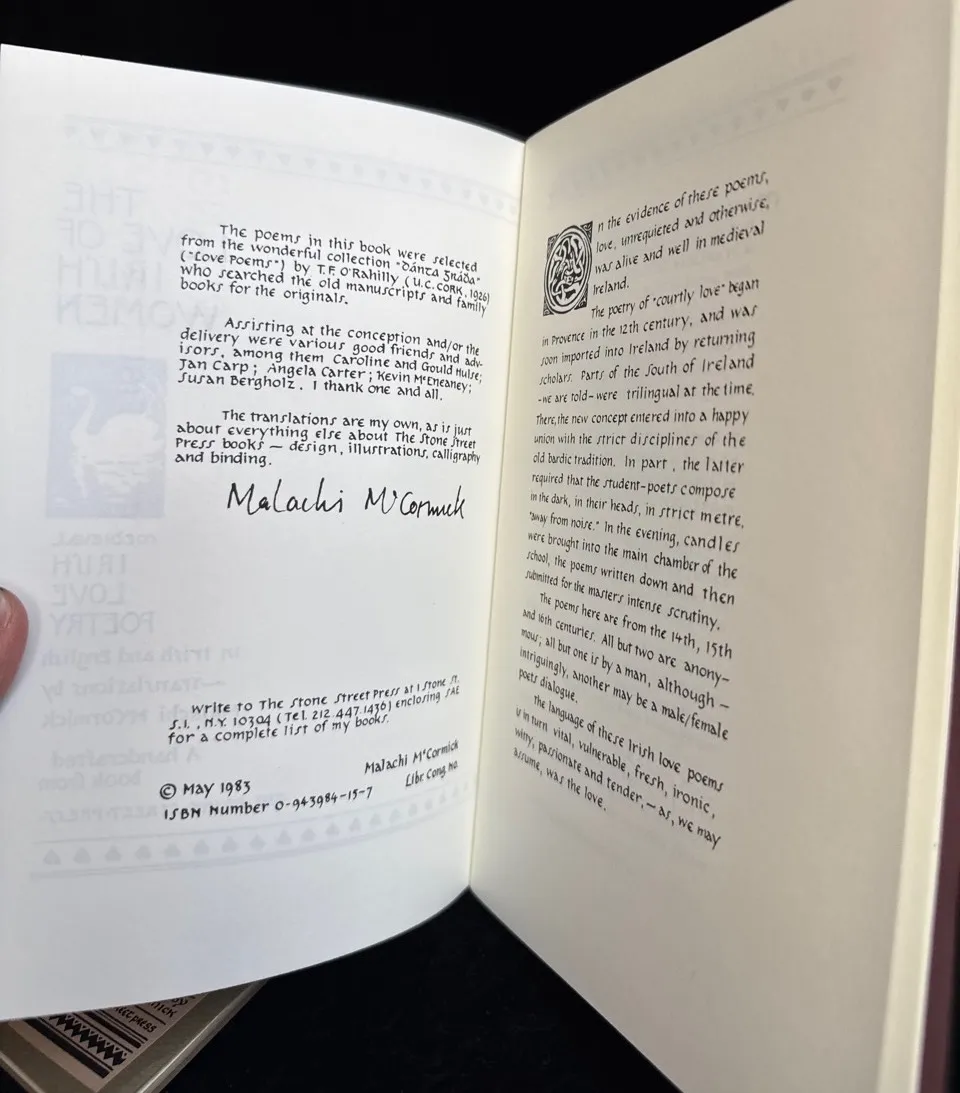 The poems in this book were selected
from the wonderful collection "Dánta Ȝráḋa"
("Love Poems") by T.F. O'Rahilly (U.C. CORK, 1926)
who searched the old manuscripts and family
books for the originals.
Assisting at the conception and/or the
delivery were various good friends and adv-
isors, among them Caroline and Gould Hulse;
Jan Carp; Angela Carter; Kevin McEneaney;
Susan Bergholz. I thank one and all.
The translations are my own, as is just
about everything else about The Stone Street
Press books — design, illustrations, calligraphy
and binding.
Malachi McCormick
Write to The Stone Street Press at 1 Stone St.
S.I., N.Y. 10304 (Tel. 212 447 1436) enclosing SAE
for a complete list of my books.
Malachi McCormick
© May 1983
Libr. Cong. No.
ISBN Number 0-943984-15-7
In the evidence of these poems,
love, unrequieted and otherwise,
was alive and well in medieval
Ireland.
The poetry of "courtly love" began
in Provence in the 12th century, and was
soon imported into Ireland by returning
scholars. Parts of the South of Ireland
-we are told- were trilingual at the time.
There, the new concept entered into a happy
union with the strict disciplines of the
old bardic tradition. In part, the latter
required that the student-poets compose
in the dark, in their heads, in strict metre,
"away from noise." In the evening, candles
were brought into the main chamber of the
school, the poems written down and then
submitted for the master's intense scrutiny.
The poems here are from the 14th, 15th
and 16th centuries. All but two are anony-
mous; all but one is by a man, although —
intriguingly, another may be a male/female
poets dialogue.
The language of these Irish love poems
is in turn vital, vulnerable, fresh, ironic,
witty, passionate and tender, — as, we may
assume, was the love.
THE
LOVE OF
IRISH
WOMEN
MEDIEVAL
IRISH
LOVE
POETRY
in Irish and English
—translations by
Malachi McCormick
A handcrafted
book from
STREET PRESS